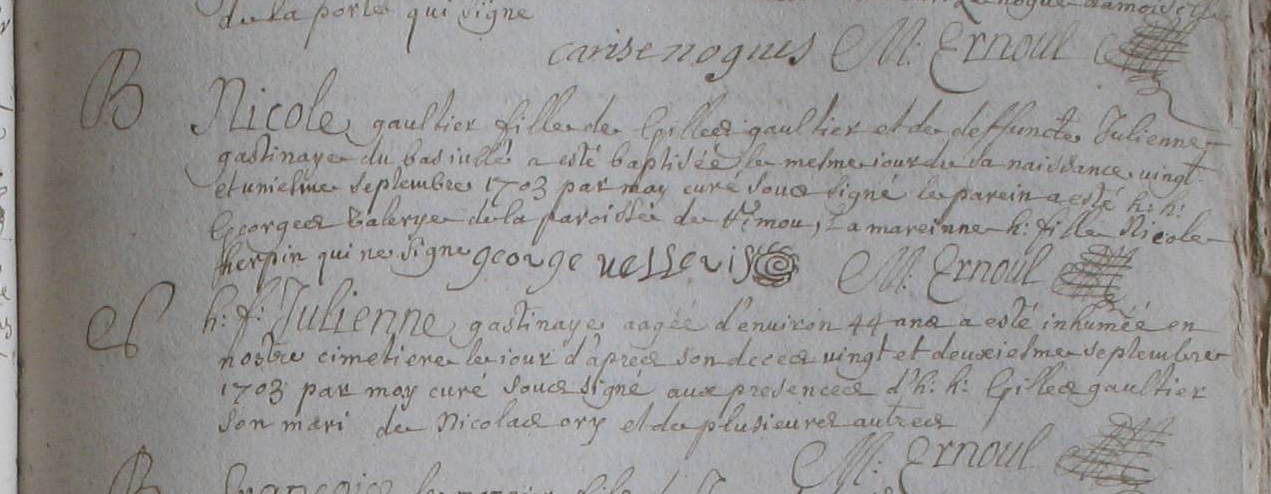 de la porte qui signe
carise nogues M: Ernoul
B Nicole gaultier fille de Gilles gaultier et de deffuncte Julienne
gastinaye du bas iullé a esté baptisée le mesme iour de sa naissance vingt
et uniesme septembre 1703 par moy curé sous signé le parein a esté h: h:
Georges Valerye de la paroisse de , La mareinne h: fille Nicole
herpin qui ne signe george M: Ernoul
S h: f: Julienne gastinaye aagée d'environ 44 ans a esté inhumée en
nostre cimetiere le iour d'apres son deces vingt et deuxiesme septembre
1703 par moy curé sous signé aux presences d'h: h: Gilles gaultier
son mari de Nicolas ory et de plusieures autres
M: Ernoul
B François